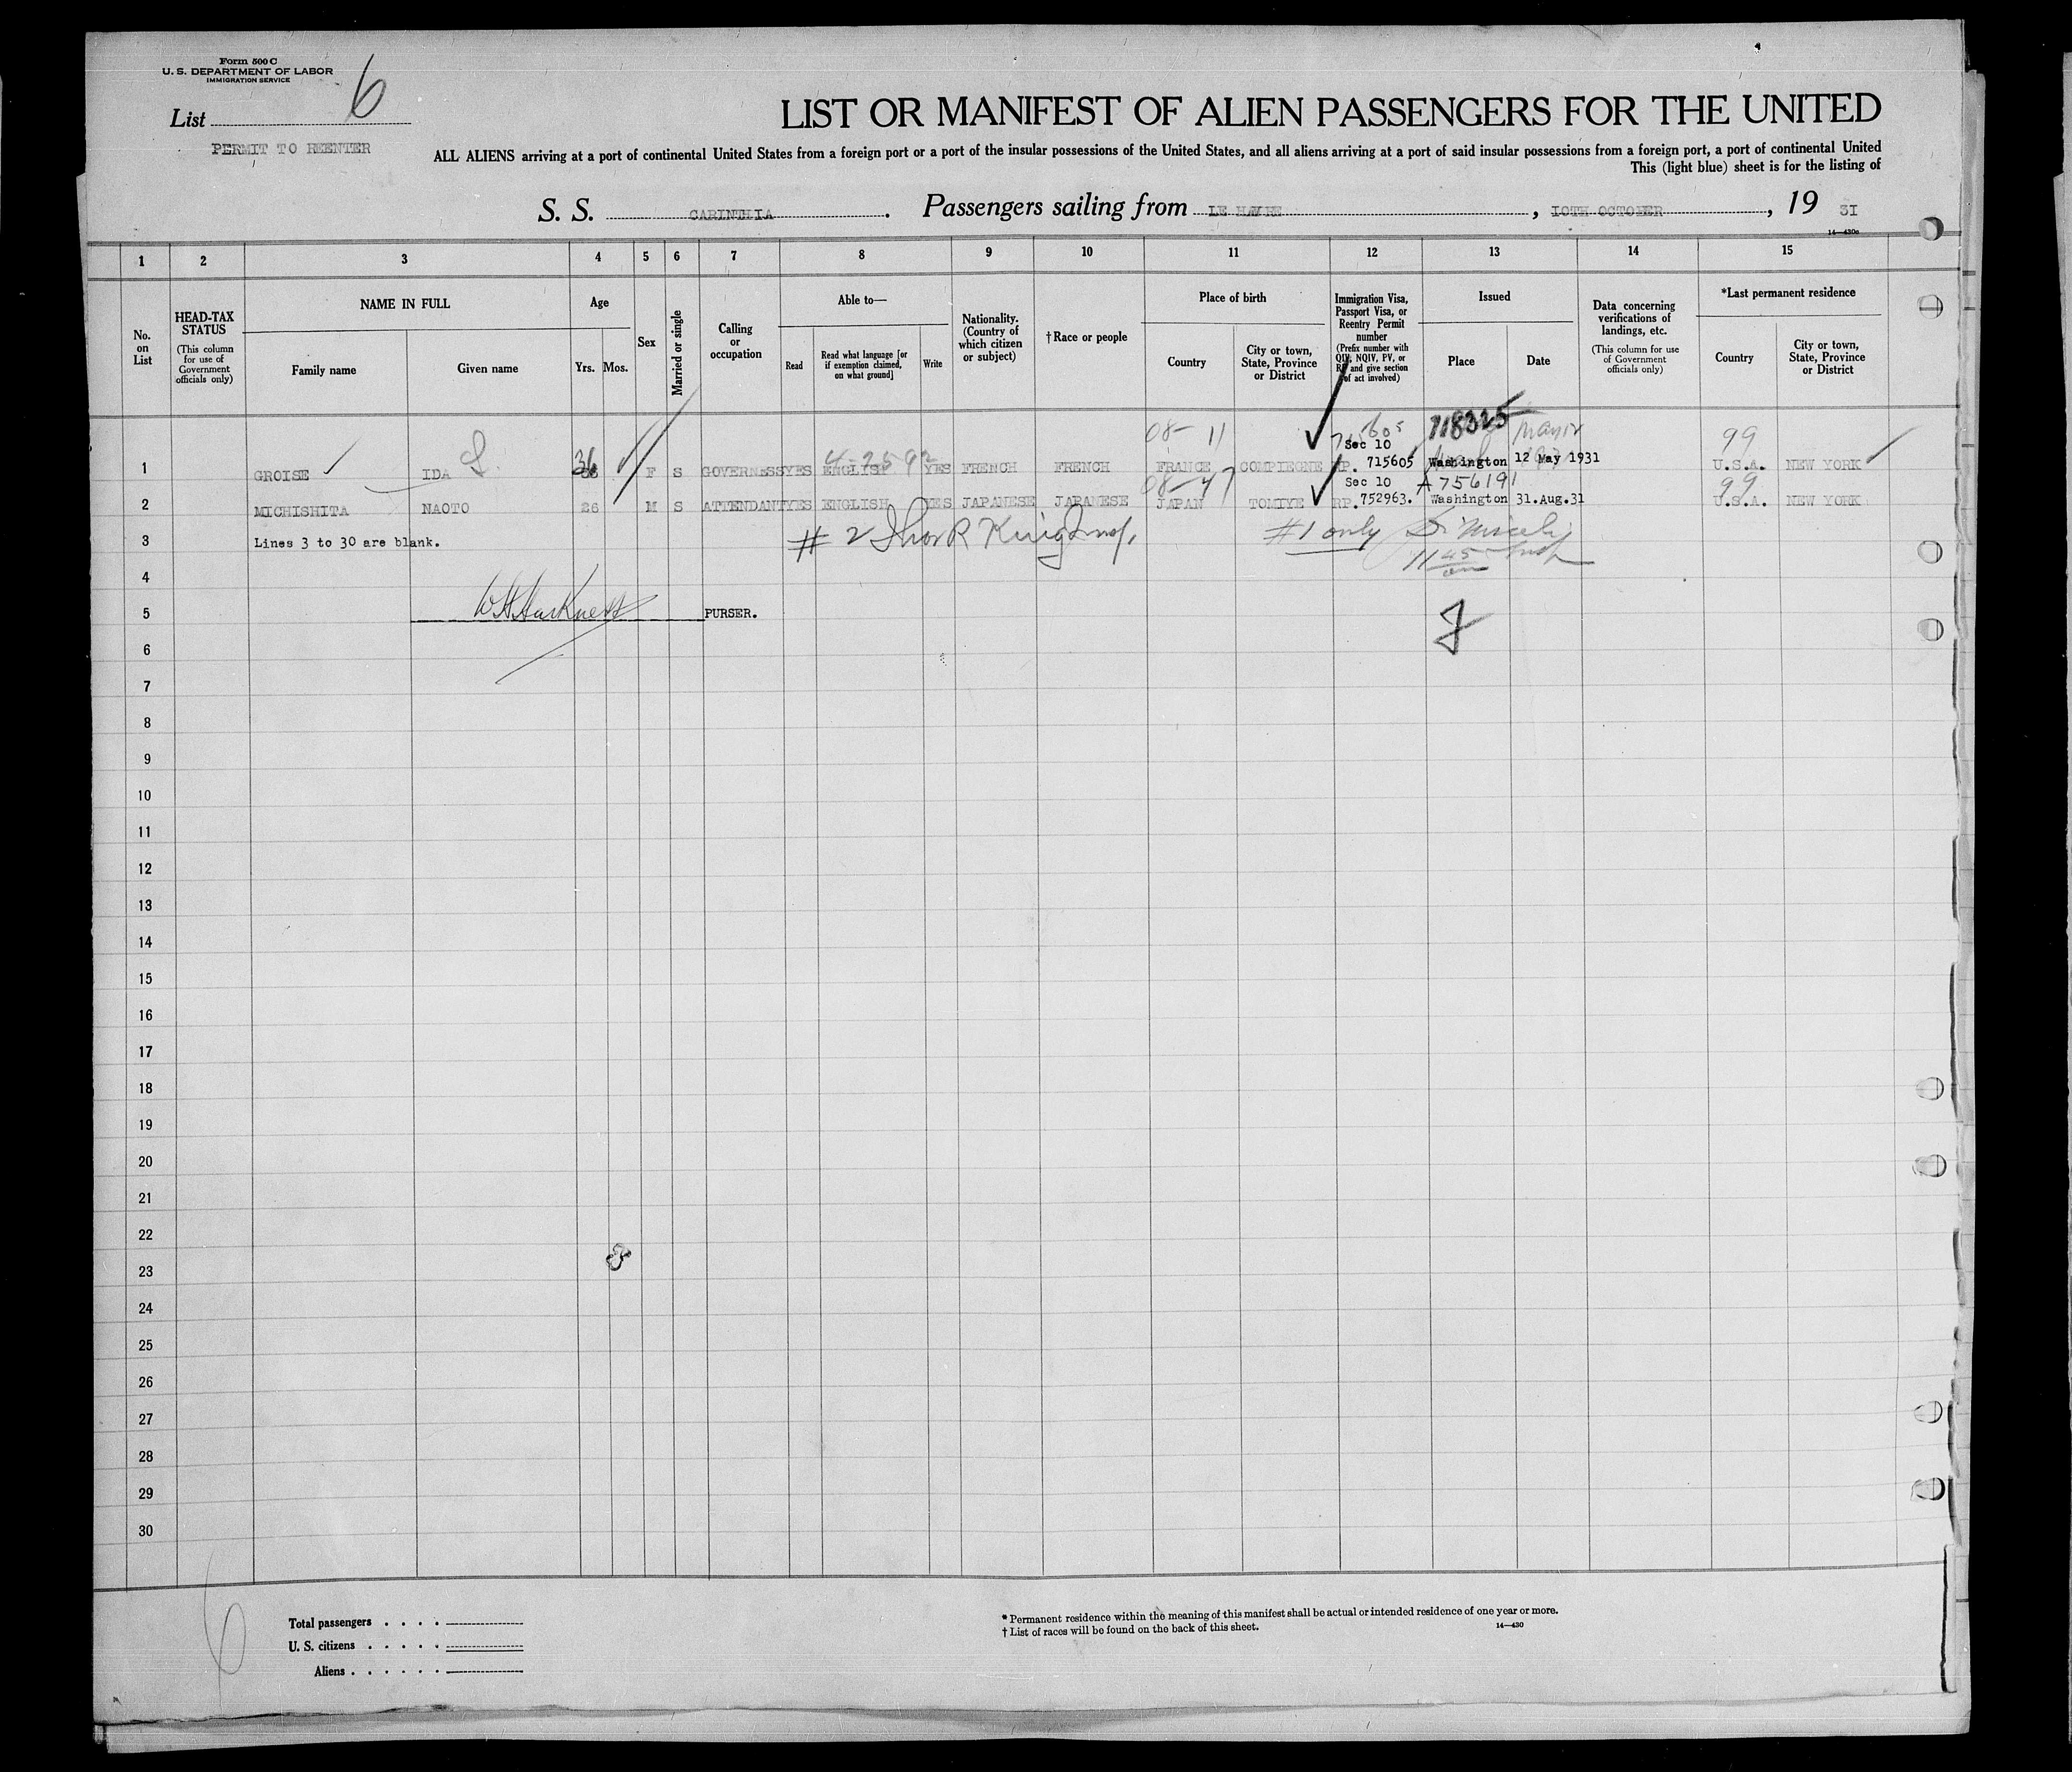 Form 500 C
U. S. DEPARTMENT OF LABOR
IMMIGRATION SERVICE
List 6
PERMIT TO REENTER
LIST OR MANIFEST OF ALIEN PASSENGERS FOR THE UNITED
ALL ALIENS arriving at a port of continental United States from a foreign port or a port of the insular possessions of the United States, and all aliens arriving at a port of said insular possessions from a foreign port, a port of continental United
This (light blue) sheet is for the listing of
S. S. CARINTHIA. Passengers sailing from LE HAVRE, 10TH OCTOBER, 19 31
14—430a
1 2 3 4 5 6 7 8 9 10 11 12 13 14 15
No. on List
HEAD-TAX STATUS
(This column for use of Government officials only)
NAME IN FULL
Family name
Given name
Age
Yrs.
Mos.
Sex
Married or single
Calling or occupation
Able to—
Read
Read what language [or if exemption claimed, on what ground]
Write
Nationality. (Country of which citizen or subject)
† Race or people
Place of birth
Country
City or town, State, Province or District
Immigration Visa, Passport Visa, or Reentry Permit number
(Prefix number with QIV, NQIV, PV, or RP, and give section of act involved)
Issued
Place
Date
Data concerning verifications of landings, etc.
(This column for use of Government officials only)
*Last permanent residence
Country
City or town, State, Province or District
08- 11 718325 99
Sec 10
1 GROISE IDA 36 F S GOVERNESS YES ENGLISH YES FRENCH FRENCH FRANCE COMPIEGNE RP. 715605 Washington 12 May 1931 U.S.A. NEW YORK
08-47 Sec 10 A756191 99
2 MICHISHITA NAOTO 26 M S ATTENDANT YES ENGLISH YES JAPANESE JAPANESE JAPAN TOMIYE RP. 752963. Washington 31.Aug.31 U.S.A. NEW YORK
3 Lines 3 to 30 are blank. # 2 #1 only
1145 am
4
5 PURSER.
6
7
8
9
10
11
12
13
14
15
16
17
18
19
20
21
22
23
24
25
26
27
28
29
30
6
Total passengers . . . .
U. S. citizens . . . . .
Aliens . . . . . .
* Permanent residence within the meaning of this manifest shall be actual or intended residence of one year or more.
† List of races will be found on the back of this sheet.
14—430